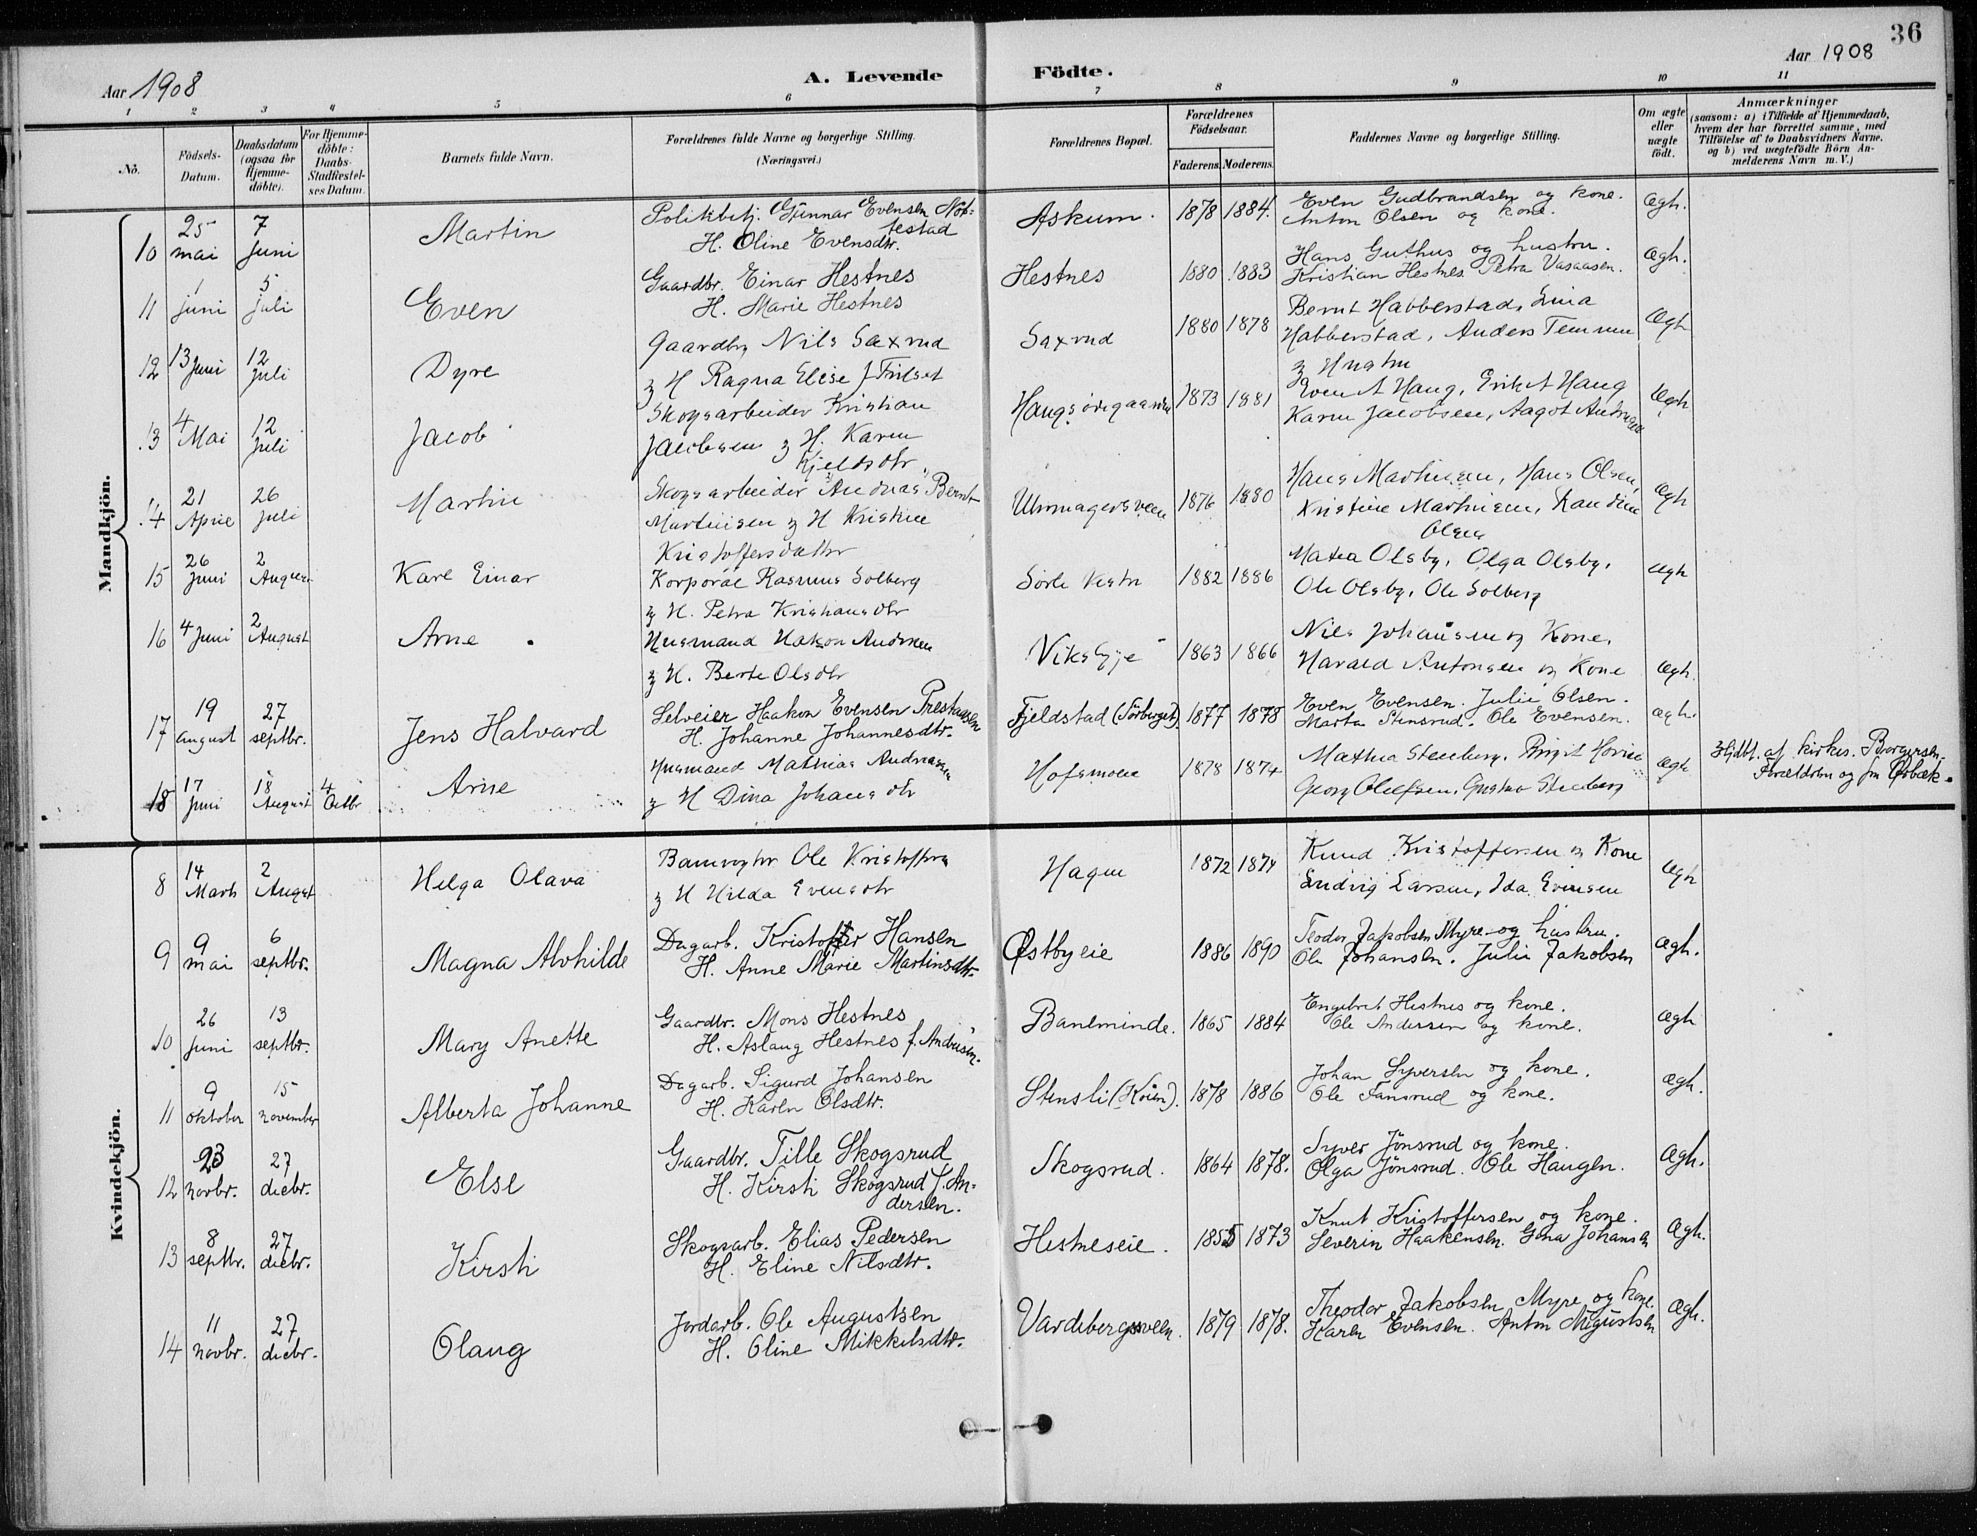 36
Aar 1908 A. Levende Födte. Aar 1908
1 2 3 4 5 6 7 8 9 10 11
Nö.
Födsels-Datum.
Daabsdatum (ogsaa for Hjemmedöbte).
For Hjemmedöbte: Daabs-Stadfæstelses Datum.
Barnets fulde Navn.
Forældrenes fulde Navne og borgerlige Stilling. (Næringsvei.)
Forældrenes Bopæl.
Forældrenes Födselsaar.
Faderens. Moderens.
Faddernes Navne og borgerlige Stilling.
Om ægte eller uægte födt.
Anmærkninger (saasom: a) i Tilfælde af Hjemmedaab, hvem der har forrettet samme, med Tilföielse af to Daabsvidners Navne. og b) ved uægtefödte Börn Anmelderens Navn m. V.)
Mandkjön.
10 25 mai 7 Juni Martin Politibetj. Gunnar Evensen Nøttestad
H. Oline Evensdtr. Askum. 1878 1884. Even Gudbrandsen og kone.
Anton Olsen og kone. Ægh.
11 1 juni 5 juli Even Gaardbr. Einar Hestnes
H. Marie Hestnes Hestnes 1880 1883 Hans Guthus og hustru.
Kristian Hestnes Petra Vasaasen. Ægh.
12 13 Juni 12 Juli Dyre Gaardbr Nils Saxrud
& H Ragna Elise f Trilset Saxrud 1880 1878 Bernt Habberstad, Lina
Habberstad, Anders Temmen
& Hustru Ægh
13 4 Mai 12 Juli Jacob Skogsarbeider Kristian
Jacobsen & H. Karen
Kjeldsdtr. 1873 1881 Even A Haug, Erik A Haug
Karen Jacobsen, Aagot Ægh
14 21 April 26 Juli Martin Skogsarbeider Andreas Bernt
Martinsen & H Kristine
Kristoffersdatter Uhrmagersveen 1876 1880 Hans Martinsen, Hans Olsen,
Kristine Martinsen, Randine
Olsen Ægh
15 26 Juni 2 August Kare Einar Korporal Rasmus Solberg
& H. Petra Kristiansdtr 1882 1886 Matea Olsby, Olga Olsby,
Ole Olsby, Ole Solberg Ægh
16 4 Juni 2 August Arne Husmand Hakon Andersen
& H. Berte Olsdtr Vikseje 1863 1866 Nils Johansen og Kone,
Harald Antonsen og Kone Ægh.
17 19 august 27 septbr. Jens Halvard Selveier Haakon Evensen
H. Johanne Johannesdtr. Fjeldstad (Sörberget). 1877 1878 Even Evensen. Julie Olsen.
Marta Stensrud. Ole Evensen. ægh.
18 17 Juni 18 August 4 Octbr Arne Husmand Mathias Andreassen
& H Dina Johansdtr Hofsmoen 1878 1874 Mathea Steenberg, Birgit
Georg Olufsen, Gustav Steenberg Ægh Hjdbt. af kirkes. Borgersen.
Forældrene og
Kvindekjön.
8 14 Marts 2 August Helga Olava Banevogter Ole Kristoffersen
& H Hilda Evensdtr Hagen 1872 1874 Knud Kristoffersen og Kone
Ludvig Larsen, Ida Evensen Ægh
9 9 mai 6 septbr. Magna Alvhilde Dagarb. Kristoffer Hansen
H. Anne Marie Martinsdtr. Østbyeie 1886 1890 Teodor Jakobsen Myre og hustru.
Ole Johansen. Julie Jakobsen Ægh.
10 26 juni 13 septbr. Mary Anette Gaardbr. Mons Hestnes
H. Aslaug Hestnes f. Andersen. Banlminde. 1865 1884 Engebret Hestnes og kone.
Ole Andersen og kone. Ægh
11 9 oktober 15 november Alberta Johanne Dagarb. Sigurd Johansen
H. Karen Olsdtr. Stensli (Koien). 1878 1886 Johan Syversen og kone.
Ole Fansrud og kone. Ægh.
12 23 novbr. 27 decbr. Else Gaardbr. Tille Skogsrud
H. Kirsti Skogsrud f. Andersen. Skogsrud. 1864 1878. Syver Jönsrud og kone.
Olga Jönsrud. Ole Haugen. Ægh.
13 8 septbr. 27 decbr. Kirsti Skogsarb. Elias Pedersen
H. Eline Nilsdtr. Hestneseie. 1855 1873 Knut Kristoffersen og kone.
Severin Haakensen. Gina Johansen Ægh.
14 11 novbr. 27 decbr. Olaug Jordarb. Ole Augustsen
H. Oline Mikkelsdtr. Vardebergsveen. 1879 1878. Theodor Jakobsen Myre og kone.
Karen Evensen. Anton Augustsen Ægh.